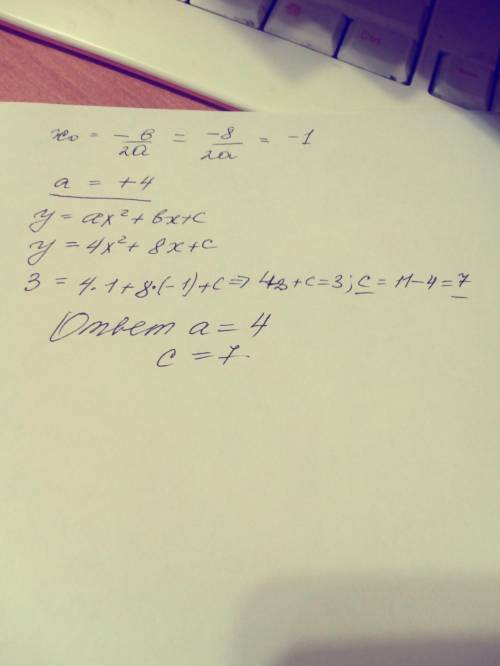 x₀ = -в/2a = -8/2a = -1
a = +4
y = ax² + bx + c
y = 4x² + 8x + c
3 = 4·1 + 8·(-1) + c => 4-8 + c = 3; c = 11-4 = 7
Ответ a = 4
c = 7
Ctrl